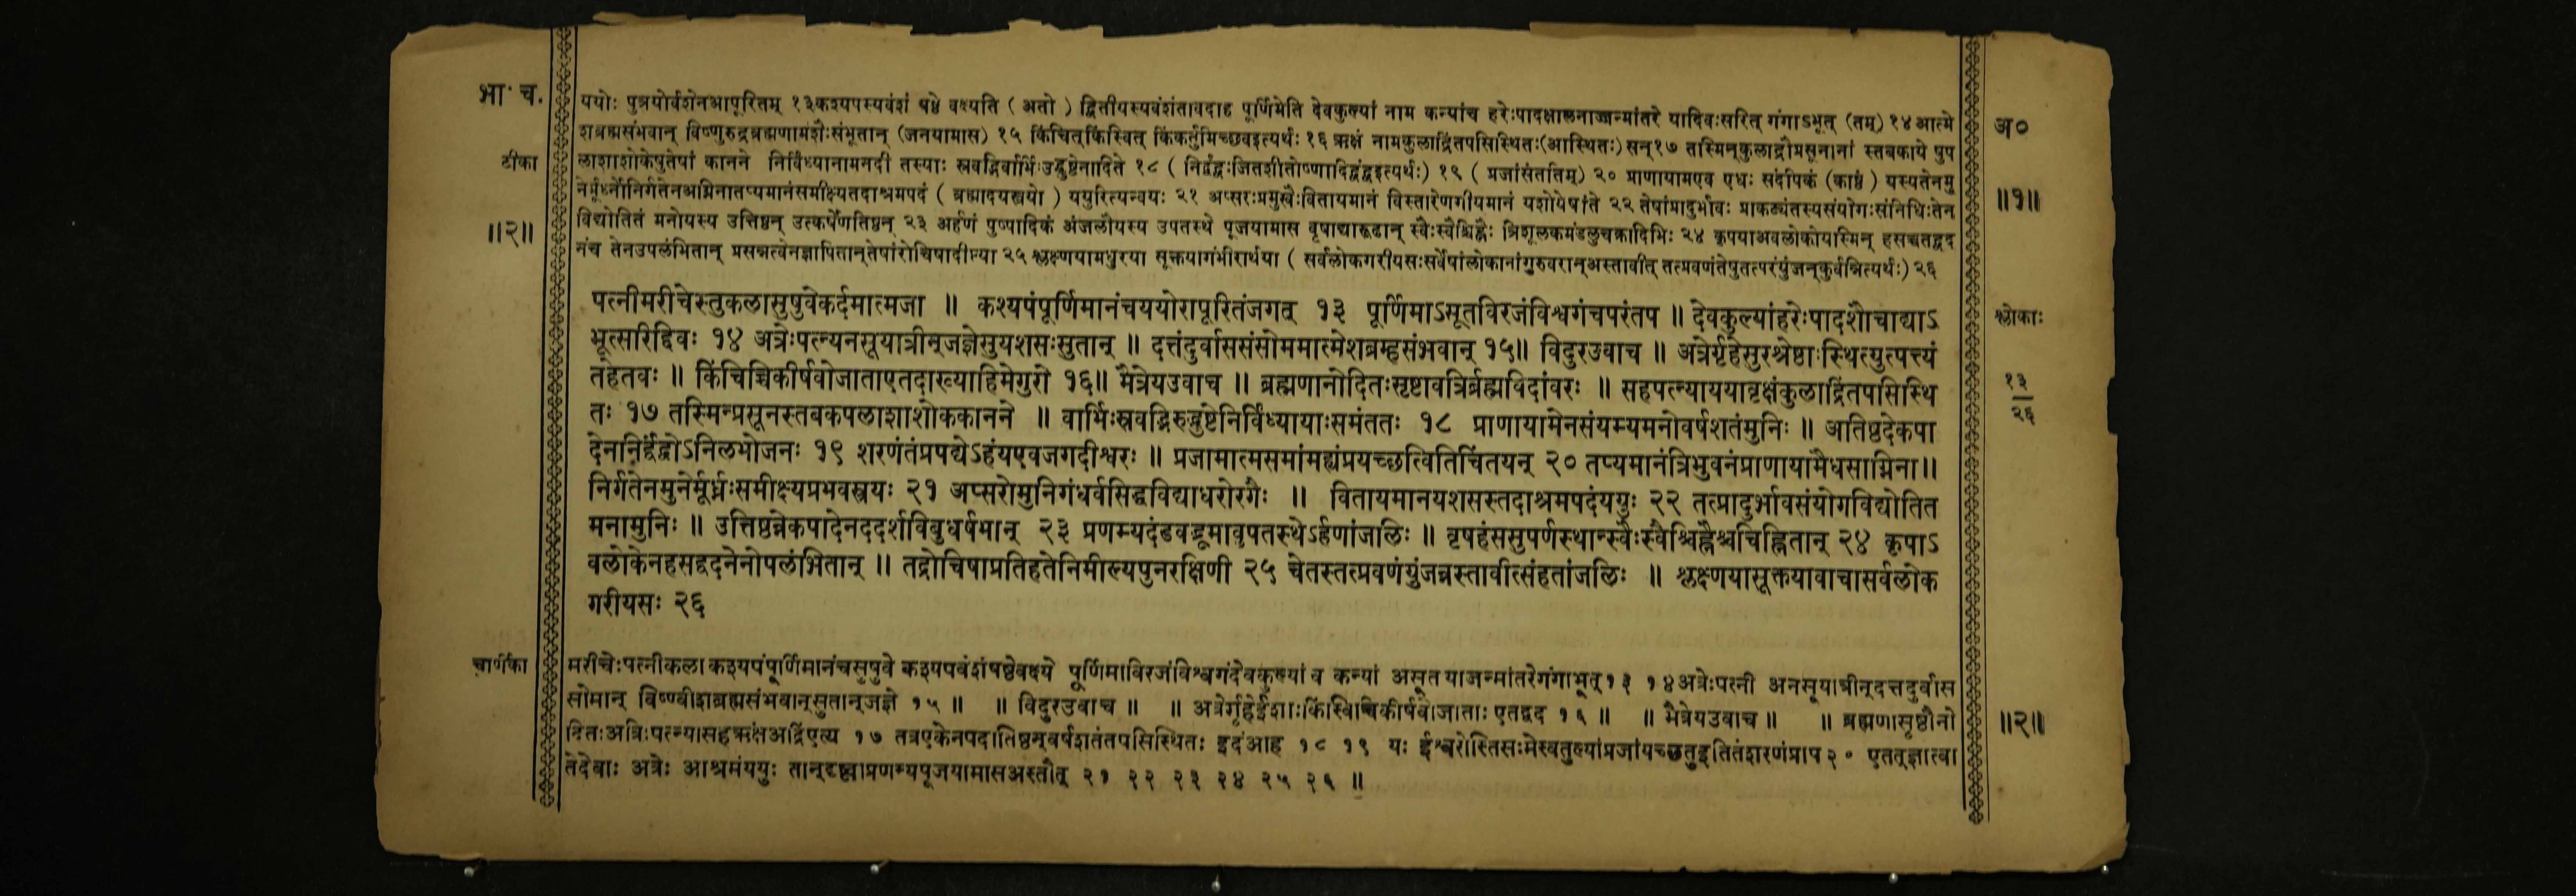 भा॰ च.
ययोः पुत्रयोर्वंशेनआपूरितम् १३कश्यपस्यवंशं षष्ठे वक्ष्यति ( अतो ) द्वितीयस्यवंशंतावदाह पूर्णिमेति देवकुल्यां नाम कन्यांच हरेःपादक्षालनाज्जन्मांतरे यादिवःसरित् गंगाऽभूत् (तम्) १४ आत्मे
अ०
शब्रह्मसंभवान् विष्णुरुद्रब्रह्मणामंशैःसंभूतान् (जनयामास) १५ किंचित्किंस्वित् किंकर्तुमिच्छवइत्यर्थः १६ ऋक्षं नामकुलाद्रिंतपसिस्थितः(आस्थितः) सन्१७ तस्मिन्कुलाद्रौप्रसूनानां स्तबकाये पुष
टीका
लाशाशोकेषुतेषां कानने निर्विंध्यानामनदी तस्याः स्रवद्भिर्वार्भिःउद्घुष्टेनादिते १८ ( निर्द्वंद्वःजितशीतोष्णादिद्वंद्वइत्यर्थः) १९ ( प्रजांसंततिम्) २० प्राणायामएव एधः संदीपकं (काष्ठं ) यस्यतेनमु
नेर्मूर्ध्नोनिर्गतेनअग्निनातप्यमानंसमीक्ष्यतदाश्रमपदं ( ब्रह्मादयस्त्रयो ) ययुरित्यन्वयः २१ अप्सरःप्रमुखैःवितायमानं विस्तारेणगीयमानं यशोयेषांते २२ तेषांप्रादुर्भावः प्राकट्यंतस्यसंयोगःसंनिधिःतेन
॥१॥
॥२॥
विद्योतितं मनोयस्य उत्तिष्ठन् उत्कर्षेणतिष्ठन् २३ अर्हणं पुष्पादिकं अंजलौयस्य उपतस्थे पूजयामास वृषाद्यारूढान् स्वैःस्वैश्चिह्नैः त्रिशूलकमंडलुचक्रादिभिः २४ कृपयाअवलोकोयस्मिन् हसच्चतद्वद
नंच तेनउपलंभितान् प्रसन्नत्वेनज्ञापितान्तेषांरोचिषादीप्त्या २५ श्लक्ष्णयामधुरया सूक्तयागंभीरार्थया ( सर्वलोकगरीयसःसर्वेषांलोकानांगुरुवरान्अस्तावीत् तत्प्रवणंतेषुतत्परंयुंजन्कुर्वन्नित्यर्थः) २६
पत्नीमरीचेस्तुकलासुषुवेकर्दमात्मजा ॥ कश्यपंपूर्णिमानंचययोरापूरितंजगत् १३ पूर्णिमाऽसूतविरजंविश्वगंचपरंतप ॥ देवकुल्यांहरेःपादशौचाद्याऽ
श्लोकाः
भूत्सरिद्दिवः १४ अत्रेःपत्न्यनसूयात्रीन्जज्ञेसुयशसःसुतान् ॥ दत्तंदुर्वाससंसोममात्मेशब्रम्हसंभवान् १५॥ विदुरउवाच ॥ अत्रेर्गृहेसुरश्रेष्ठाःस्थित्युत्पत्त्यं
तहेतवः ॥ किंचिच्चिकीर्षवोजाताएतदाख्याहिमेगुरो १६॥ मैत्रेयउवाच ॥ ब्रह्मणानोदितःसृष्टावत्रिर्ब्रह्मविदांवरः ॥ सहपत्न्याययावृक्षंकुलाद्रिंतपसिस्थि
१३
२६
तः १७ तस्मिन्प्रसूनस्तबकपलाशाशोककानने ॥ वार्भिःस्रवद्भिरुद्घुष्टेनिर्विंध्यायाःसमंततः १८ प्राणायामेनसंयम्यमनोवर्षशतंमुनिः ॥ अतिष्ठदेकपा
देननिर्द्वंद्वोऽनिलभोजनः १९ शरणंतंप्रपद्येऽहंयएवजगदीश्वरः ॥ प्रजामात्मसमांमह्यंप्रयच्छत्वितिचिंतयन् २० तप्यमानंत्रिभुवनंप्राणायामैधसाग्निना॥
निर्गतेनमुनेर्मूर्ध्नःसमीक्ष्यप्रभवस्त्रयः २१ अप्सरोमुनिगंधर्वसिद्धविद्याधरोरगैः ॥ वितायमानयशसस्तदाश्रमपदंययुः २२ तत्प्रादुर्भावसंयोगविद्योतित
मनामुनिः ॥ उत्तिष्ठन्नेकपादेनददर्शविबुधर्षभान् २३ प्रणम्यदंडवद्भूमावुपतस्थेऽर्हणांजलिः ॥ वृषहंससुपर्णस्थान्स्वैःस्वैश्चिह्नैश्चचिह्नितान् २४ कृपाऽ
वलोकेनहसद्वदनेनोपलंभितान् ॥ तद्रोचिषाप्रतिहतेनिमील्यपुनरक्षिणी २५ चेतस्तत्प्रवणंयुंजन्नस्तावीत्संहतांजलिः ॥ श्लक्ष्णयासूक्तयावाचासर्वलोक
गरीयसः २६
चूर्णिका
मरीचेःपत्नीकला कश्यपंपूर्णिमानंचसुषुवे कश्यपवंशंषष्ठेवक्ष्ये पूर्णिमाविरजंविश्वगंदेवकुल्यां व कन्यां असूत याजन्मांतरेगंगाभूत्१३ १४अत्रेःपत्नी अनसूयात्रीन्दत्तदुर्वास
सोमान् विष्ण्वीशब्रह्मसंभवान्सुतान्जज्ञे १५ ॥ ॥ विदुरउवाच ॥ ॥ अत्रेर्गृहेईशाःकिंस्विच्चिकीर्षवोजाताः एतद्वद १६ ॥ ॥ मैत्रेयउवाच ॥ ॥ ब्रह्मणासृष्टौनो
॥२॥
दितःअत्रिःपत्न्यासहऋक्षंअद्रिंएत्य १७ तत्रएकेनपदातिष्ठन्वर्षशतंतपसिस्थितः इदंआह १८ १९ यः ईश्वरोस्तिसःमेस्वतुल्यांप्रजांयच्छतुइतितंशरणंप्राप२० एतत्ज्ञात्वा
तेदेवाः अत्रेः आश्रमंययुः तान्दृष्ट्वाप्रणम्यपूजयामासअस्तौत् २१ २२ २३ २४ २५ २६ ॥